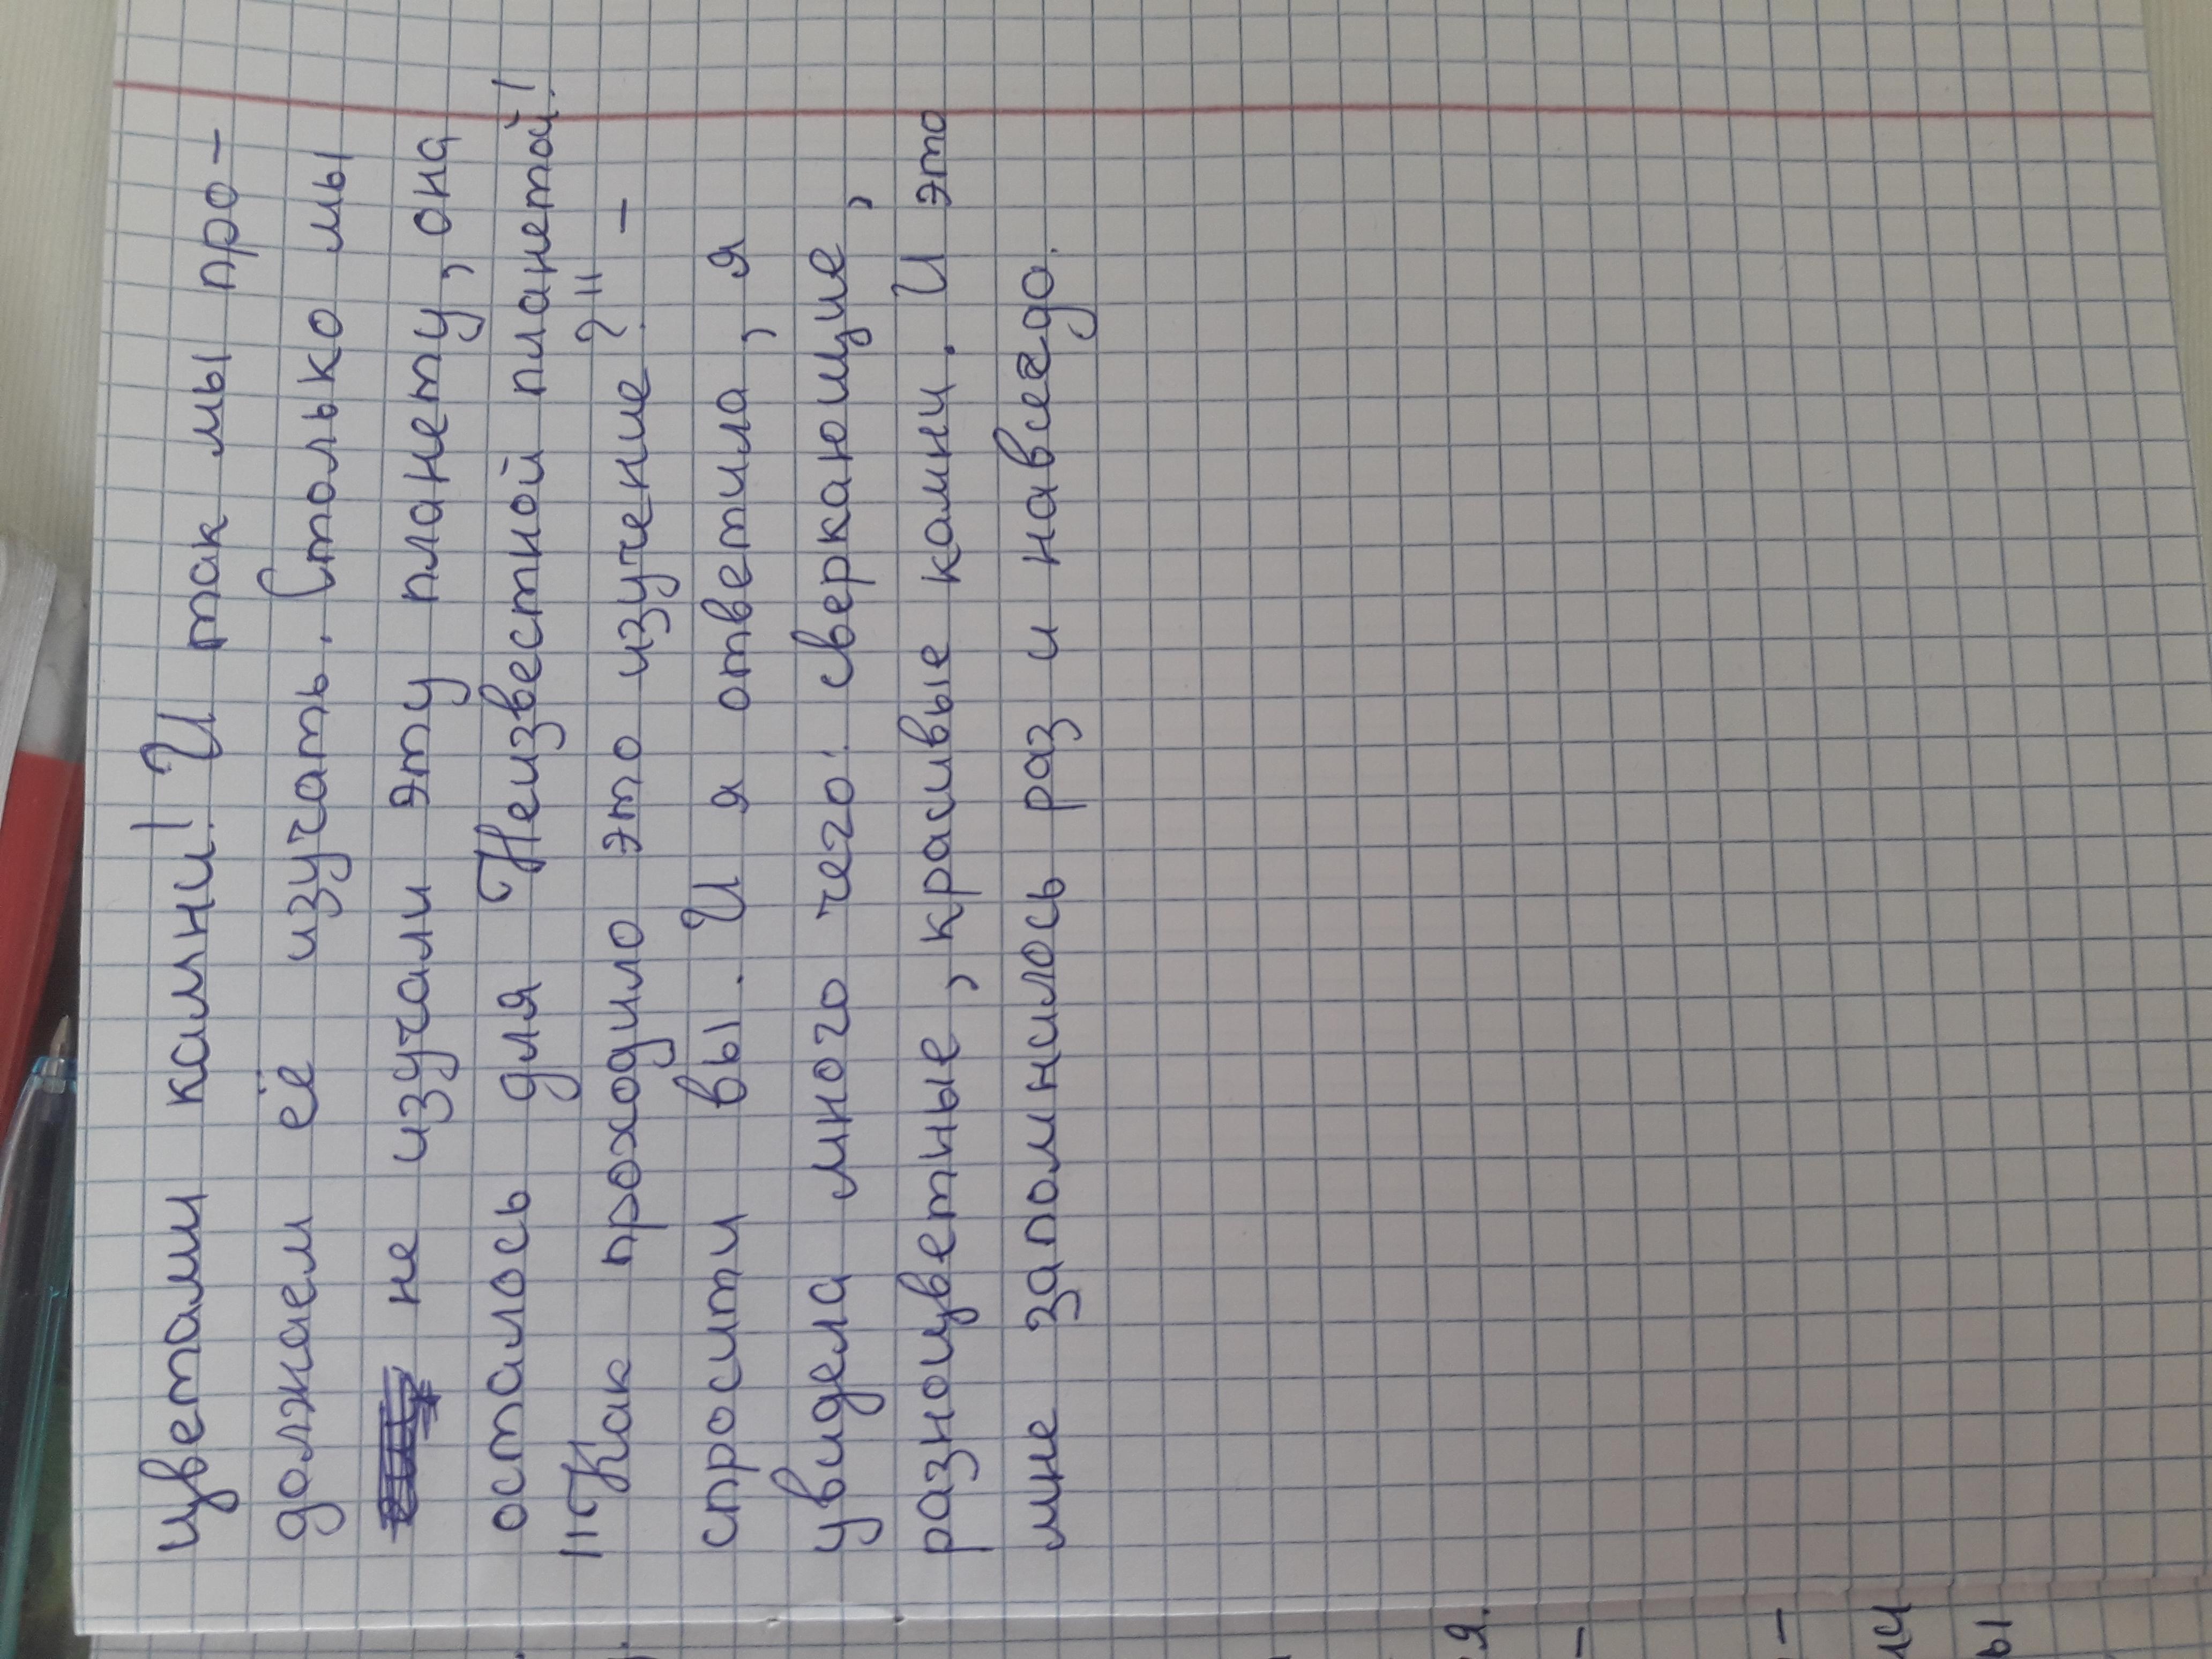 цветами камни! И так мы про-
должаем её изучать. Столько мы
не изучали эту планету, она
осталось для Неизвестной планетой!
"Как проходило это изучение?" -
спросити вы. И я ответила, я
увидела много чего: сверкающие,
разноцветные, красивые камни. И это
мне запомнилось раз и навсегдо.